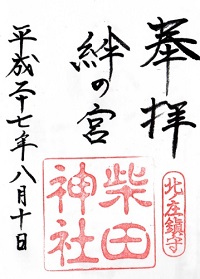 奉拝
北庄鎮守
絆の宮
柴田
神社
平成二十七年八月十日